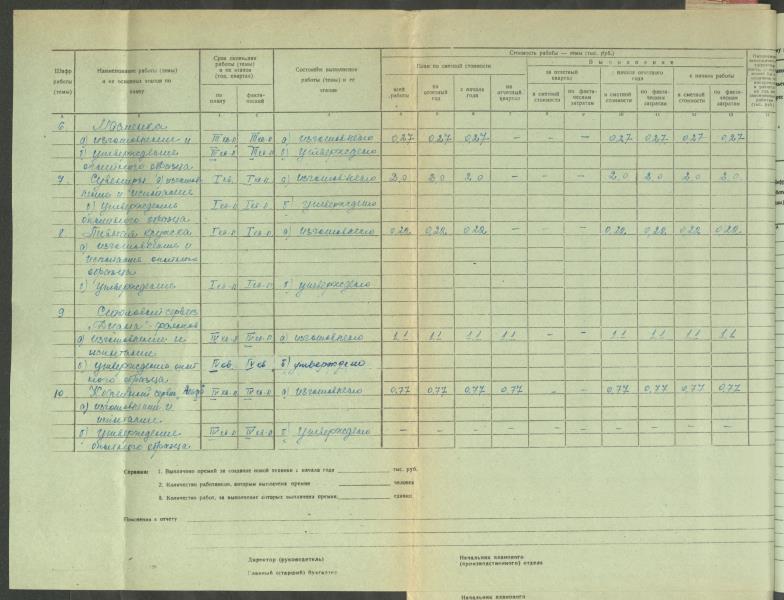 Стоимость работы — темы (тыс. руб.)
Шифр работы (темы)
Наименование работы (темы) и ее основных этапов по плану
Срок окончания работы (темы) и ее этапов (год, квартал)
по плану
факти-ческий
Состояние выполнения работы (темы) и ее этапов
План по сметной стоимости
всей работы
на отчетный год
с начала года
на отчетный квартал
Выполнение
за отчетный квартал
с начала отчетного года
с начала работы
в сметной стоимости
по фактическим затратам
в сметной стоимости
по фактическим затратам
в сметной стоимости
по фактическим затратам
6 Масленка
а) изготовление и III кв. III кв. а) изготовлено 0,27 0,27 0,27 – – – 0,27 0,27 0,27 0,27
б) утверждение III кв. III кв. б) утверждено
опытного образца
7 Сувениры а) изготов- I кв. I кв. а) изготовлено 2,0 2,0 2,0 – – – 2,0 2,0 2,0 2,0
ление и испытание
б) утверждение I кв. I кв. б) утверждено
опытного образца
8 Пивная кружка I кв. I кв. а) изготовлено 0,20 0,20 0,20 – – – 0,20 0,20 0,20 0,20
а) изготовление и
испытание опытного
образца
б) утверждение I кв. I кв. б) утверждено
9 Столовый сервиз
а) изготовление и IV кв. IV кв. а) изготовлено 1.1 1.1 1.1 1.1 – – 1.1 1.1 1.1 1.1
испытание
б) утверждение опыт- IV кв IV кв б) утверждено
ного образца
10. Кофейный сервиз IV кв. IV кв. а) изготовлено 0,77 0,77 0,77 0,77 – – 0,77 0,77 0,77 0,77
а) изготовление и
испытание
б) утверждение IV кв. IV кв. б) утверждено – – – – – – – – – –
опытного образца
Справки: 1. Выплачено премий за создание новой техники с начала года тыс. руб.
2. Количество работников, которым выплачена премия человек
3. Количество работ, за выполнение которых выплачена премия единиц
Пояснения к отчету
Директор (руководитель)
Начальник планового (производственного) отдела
Главный (старший) бухгалтер
Начальник планового